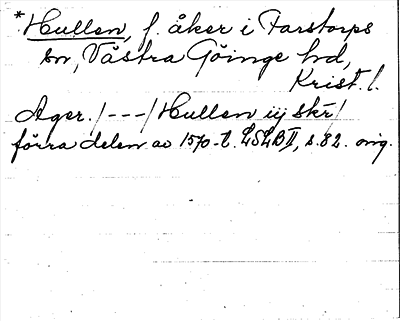 *Hullen, f. åker i Farstorps
sn, Västra Göinge hd,
Krist. l.
Ager. /---/ Hullen iij skr/
förra delen av 1570-t. LSLB II, s. 82. orig.